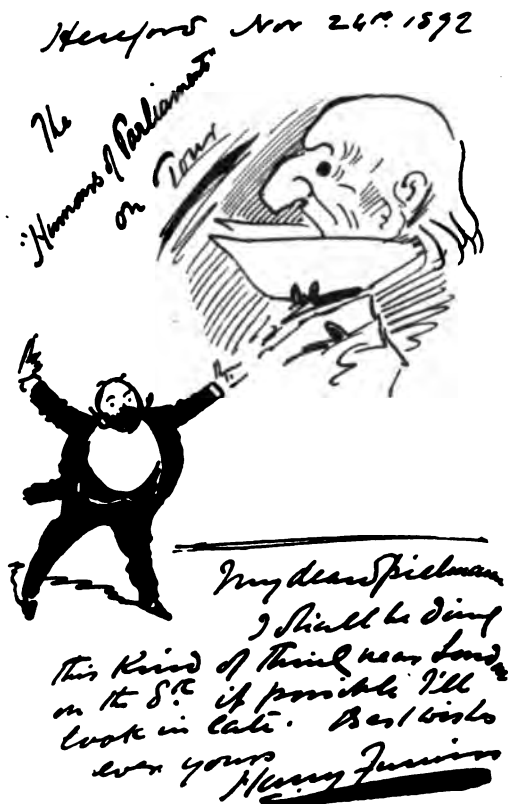 Hereford Nov 24th 1892
The
"Humours of Parliament"
on Tour
My dear Spielmann
I shall be doing
this kind of thing near London
on the 8th. if possible I'll
look in late. Best wishes
ever yours
Harry Furniss